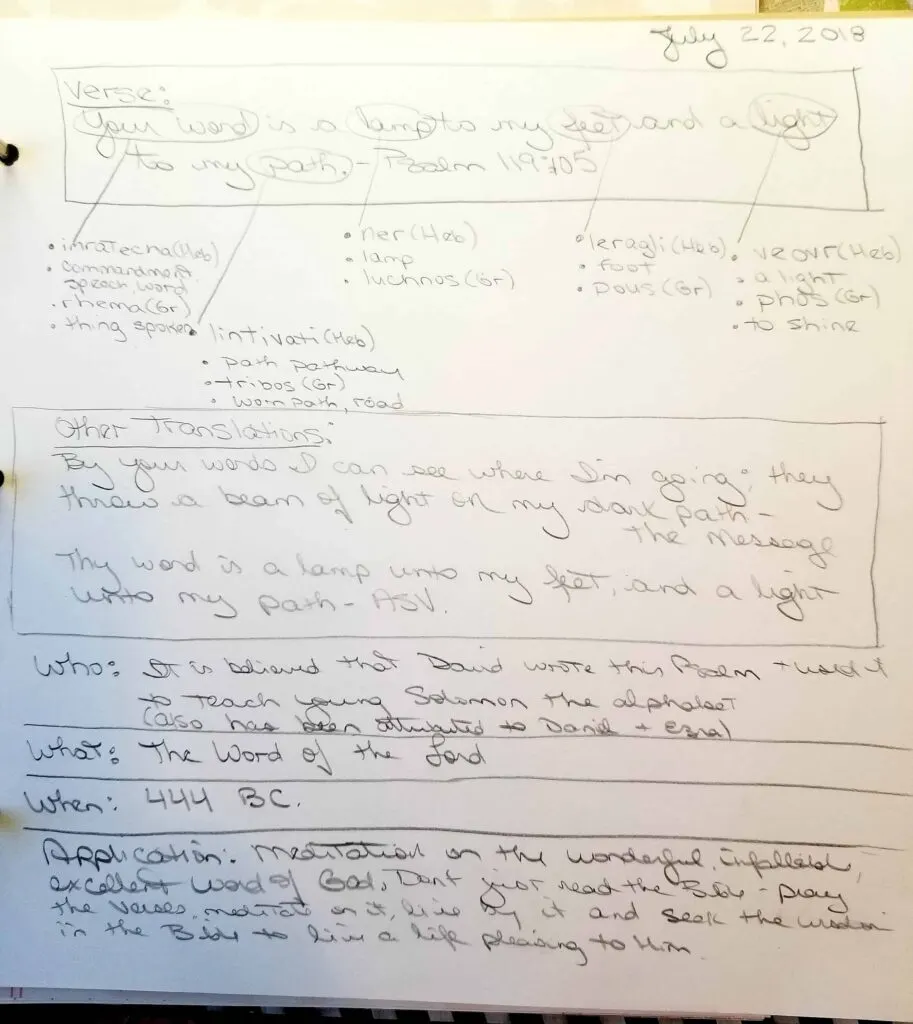 July 22, 2018
Verse:
Your word is a lamp to my feet and a light
to my path. - Psalm 119:105
• imratecha (Heb)
• commandment
speech, word
• rhema (Gr)
• thing spoken
• lintivati (Heb)
• path pathway
• tribos (Gr)
• worn path, road
• ner (Heb)
• lamp
• luchnos (Gr)
• leragli (Heb)
• foot
• pous (Gr)
• veovr (Heb)
• a light
• phos (Gr)
• to shine
Other Translations:
By your words I can see where I'm going; they
throw a beam of light on my dark path -
the Message
Thy word is a lamp unto my feet, and a light
unto my path - ASV.
Who: It is believed that David wrote this Psalm + used it
to teach young Solomon the alphabet
(also has been attributed to Daniel + Ezra)
What: The Word of the Lord
When: 444 BC.
Application: Meditation on the wonderful,
excellent word of God, Don't just read the Bible - pray
the verses, meditate on it, live by it and seek the wisdom
in the Bible to live a life pleasing to Him.